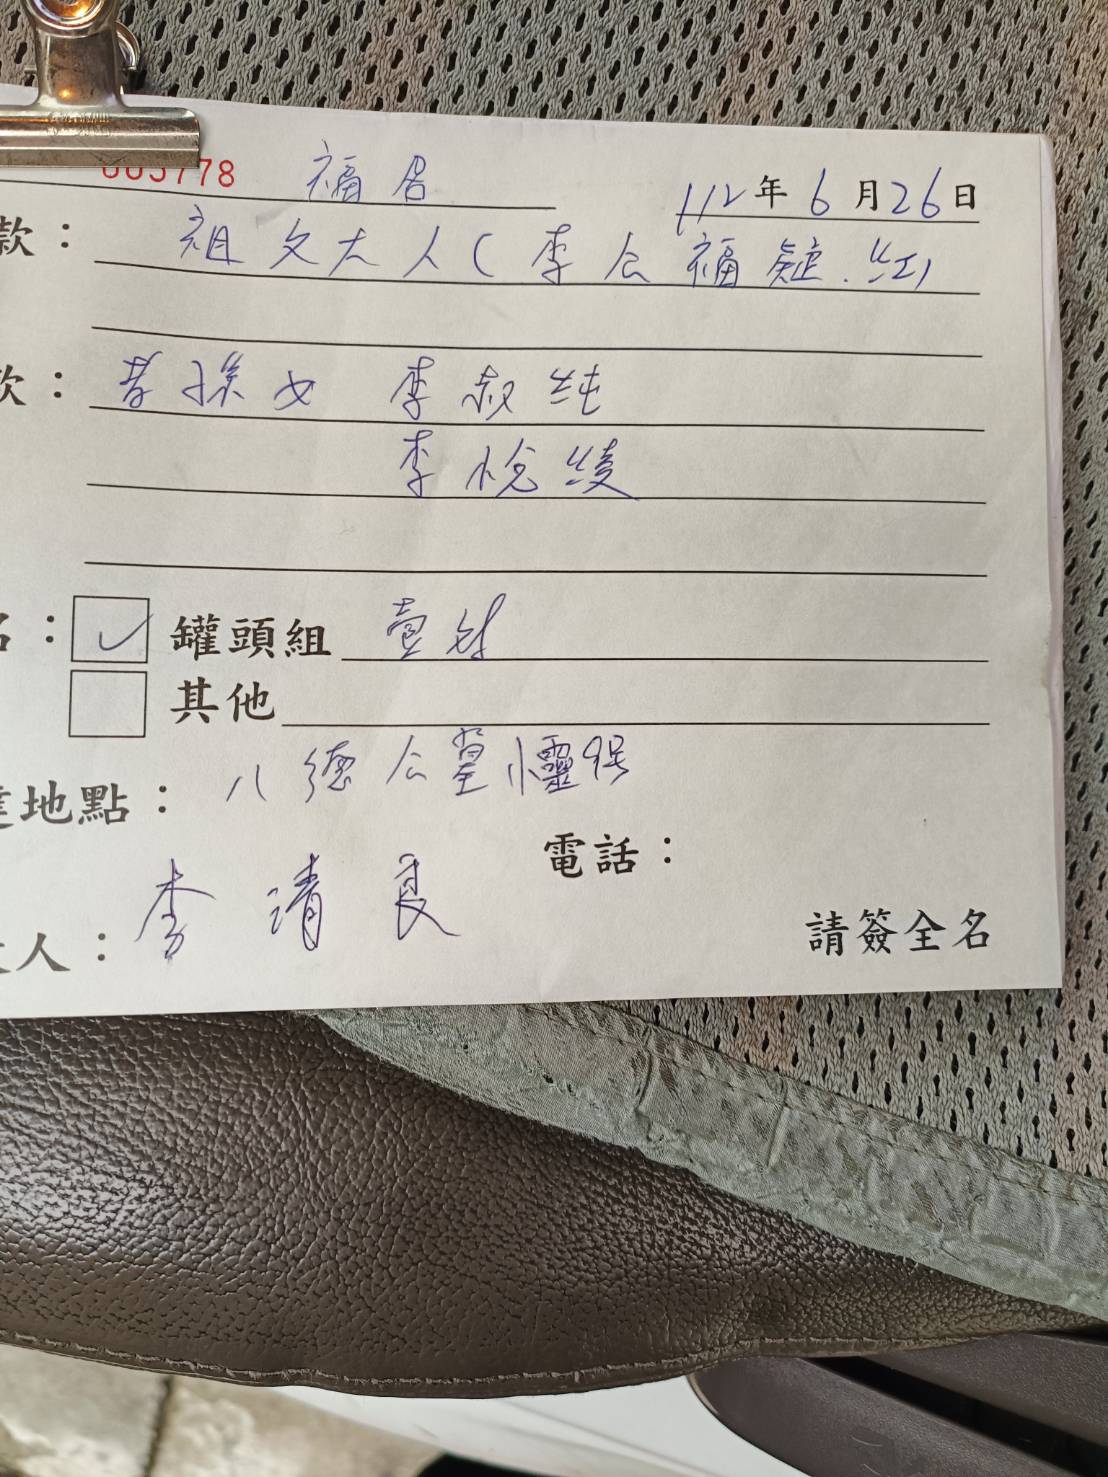 003778 福居
112年6月26日
款： 祖父大人(李公福 . 紅)
款： 孝孫女 李淑純
李悅綾
名： ✓ 罐頭組 壹對
其他
達地點： 八德公 懷靈 9號
電話：
人： 李清良
請簽全名